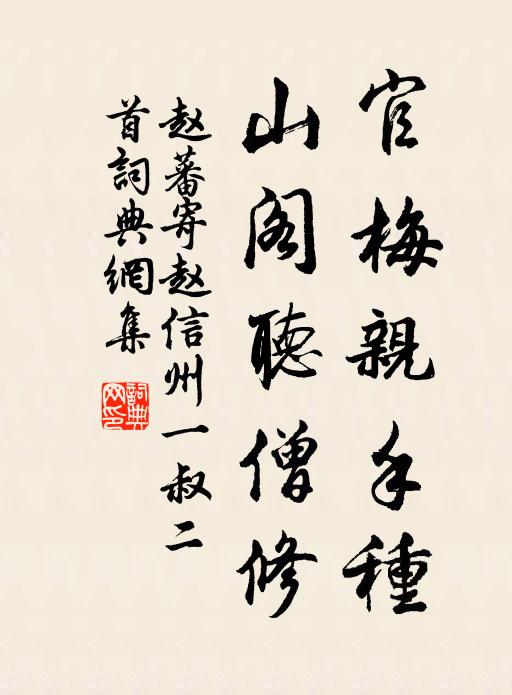 官梅親手種
山阁聽僧修
赵蕃寄赵信州一叔二
首詞典網集
詞典
网印